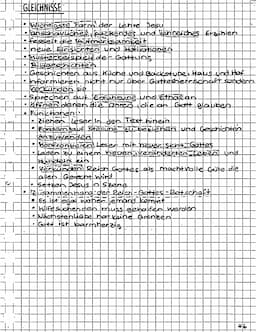 GLEICHNISSE
• Wichtigste Form der Lehre Jesu
• anschauliches, packendes und lehrreiches Erzählen
• fesselt die Aufmerksamkeit
• neue Einsichten und Motivationen
• Gattung
• Bildgeschichten
• Geschichten aus Küche und Backstube, Haus und Hof
• informieren nicht nur über Gottesherrschaft sondern
verkünden sie
• Sprechen auf Erfahrung und Ethos an
• öffnen denen die Ohren, die an Gott glauben
• Funktionen:
• ziehen Leser in den Text hinein
• Fordern auf Stellung zu beziehen und Geschichten
• konfrontieren Leser mit neuer Sicht Gottes
• Laden zu einem neuen, veränderten Leben und
Handeln ein
• Verkünden Reich Gottes als machtvolle Güte die
allen Gerecht wird
• setzen Jesus in Szene
• Zusammenhang der Reich-Gottes-Botschaft
• Es ist egal wann jemand kommt
• Hilfesuchenden muss geholfen werden
• Nächstenliebe hat keine Grenzen
• Gott ist barmherzig